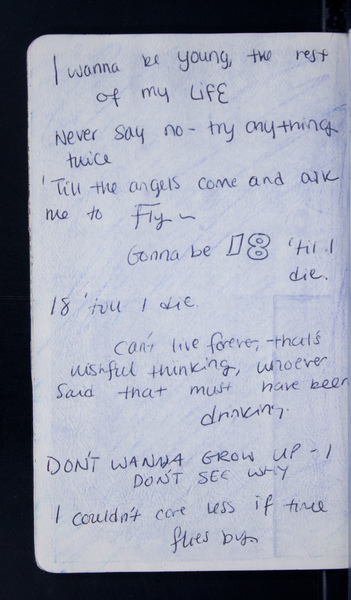 I wanna be young, the rest
of my LIFE
Never say no - try anything
twice
'Till the angels come and ask
me to Fly ~
Gonna be 18 'til I
die.
18 'till I die.
Can't live forever, - that's
wishful thinking, whoever
Said that must have been
drinking.
DON'T WANNA GROW UP - I
DON'T SEE WHY
I couldn't care less if time
flies by